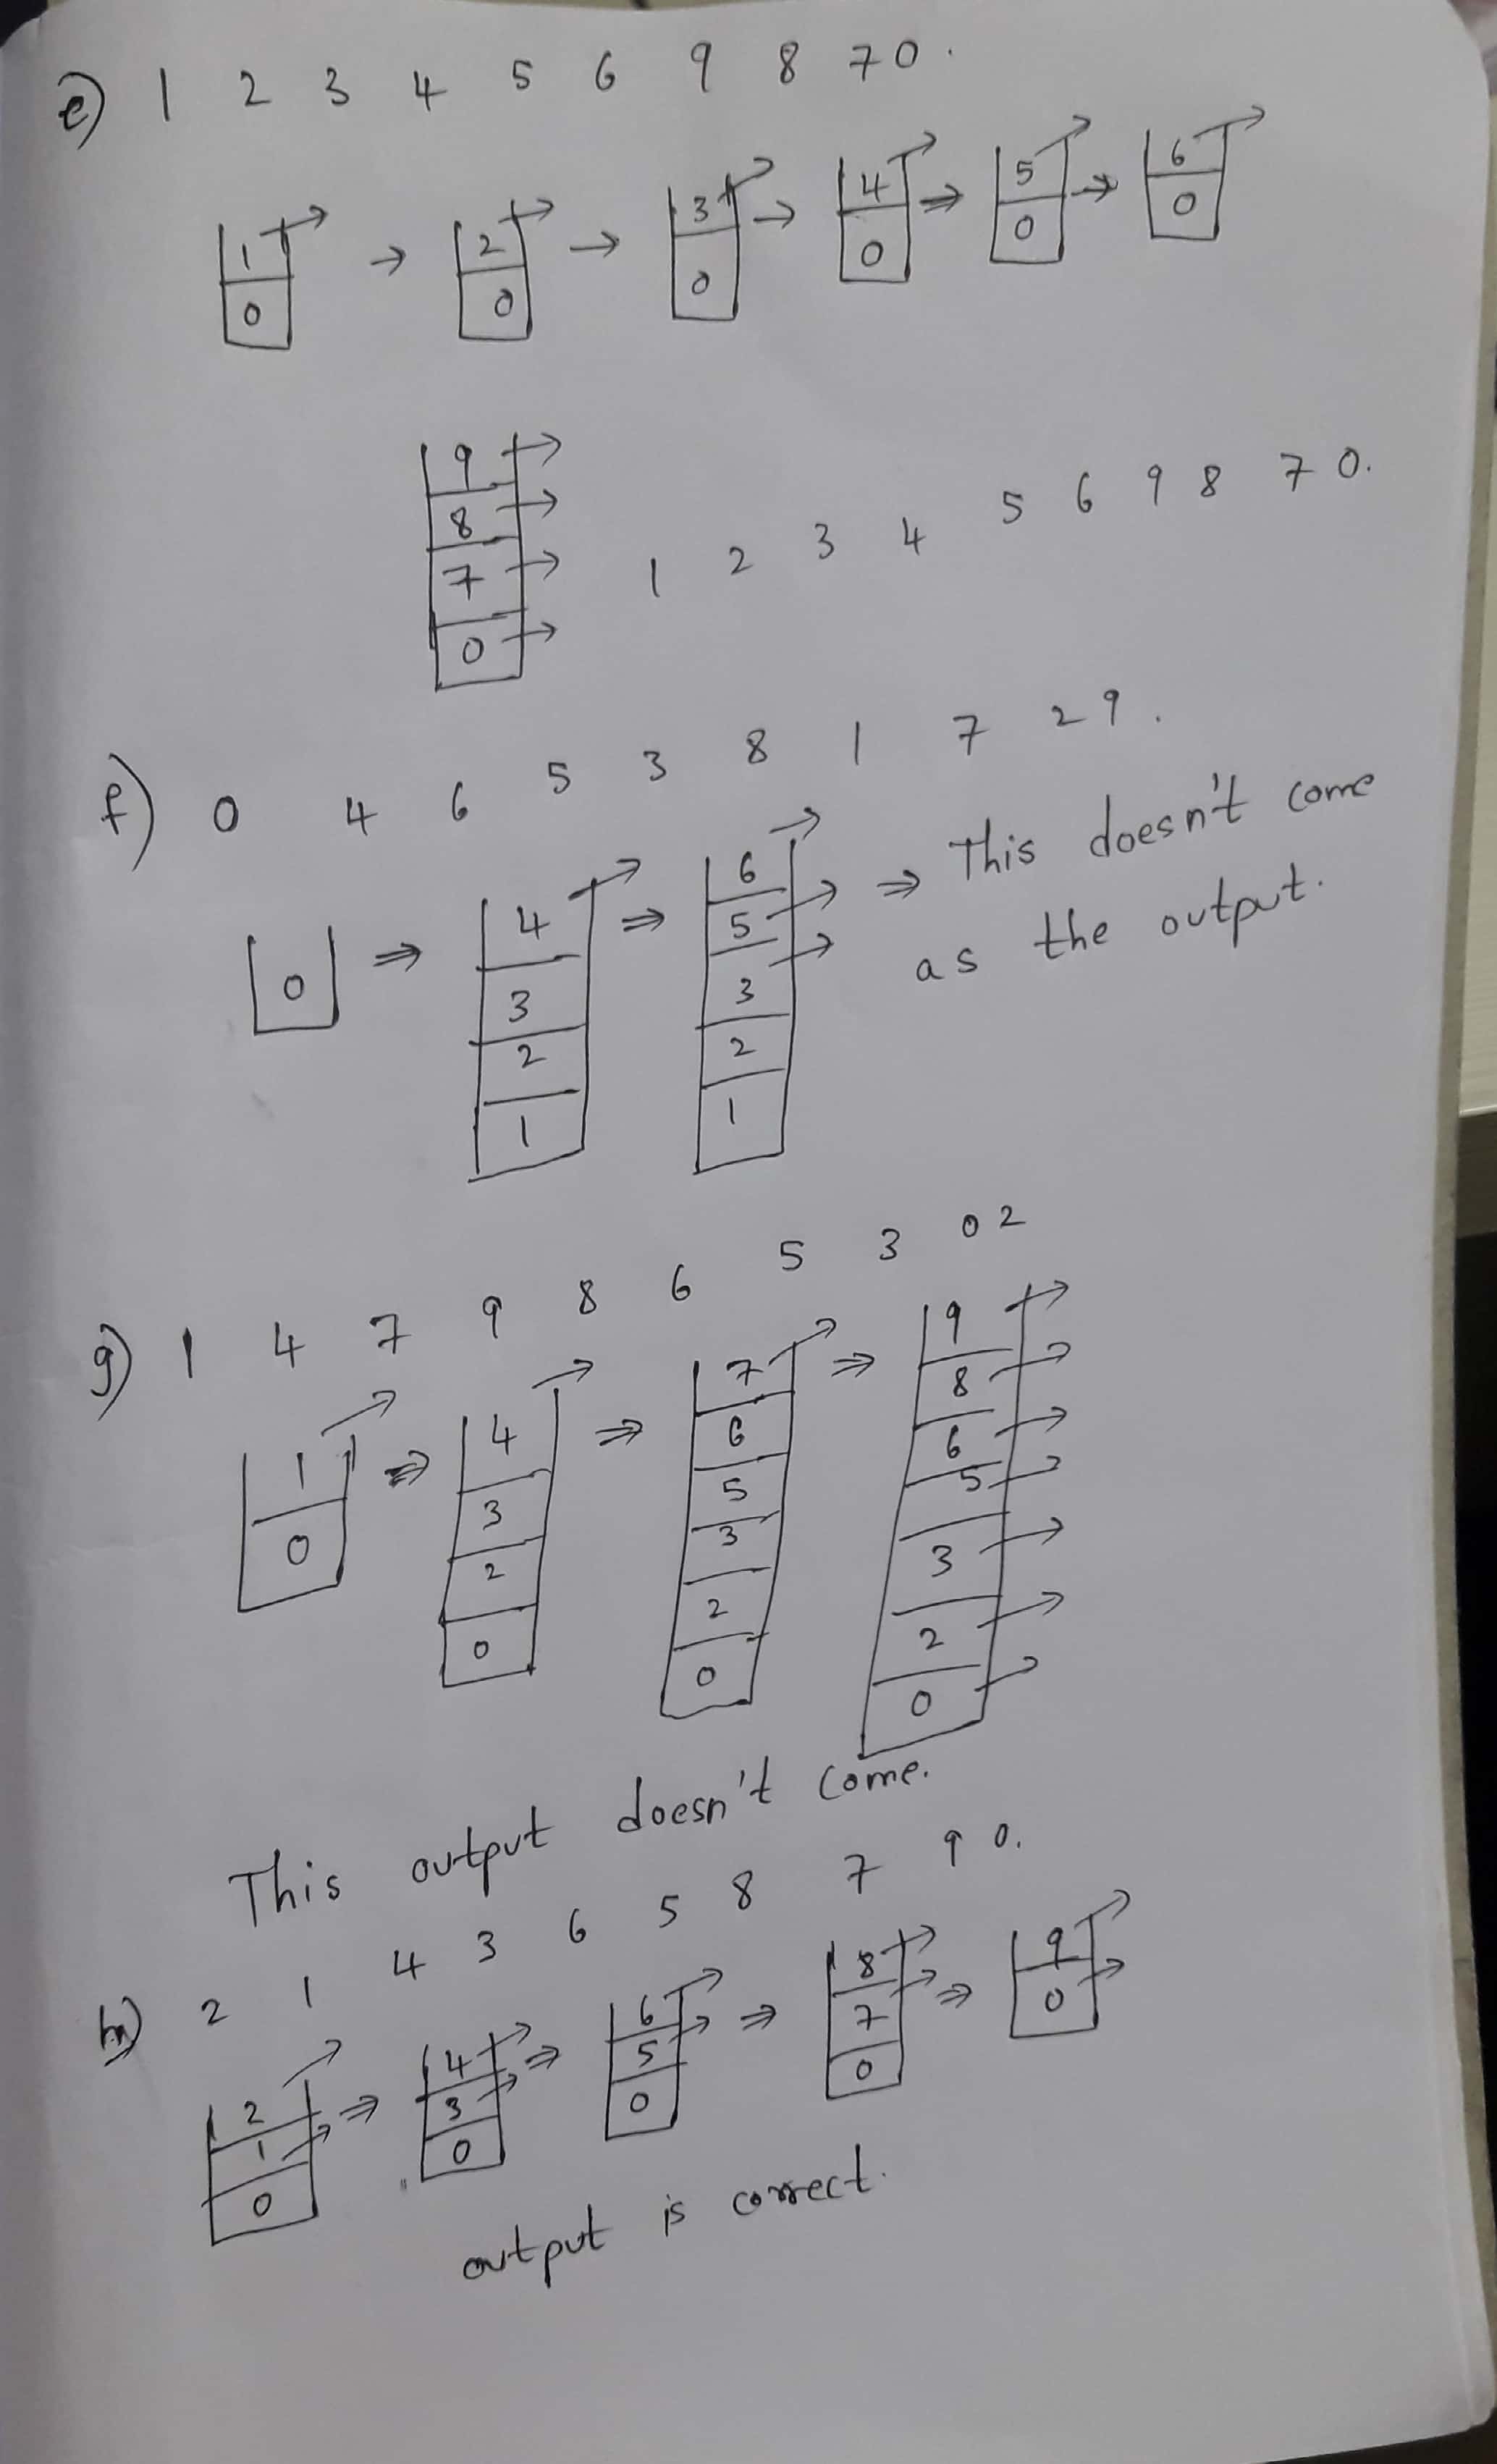 e) 1 2 3 4 5 6 9 8 7 0.
1 → 2 → 3 → 4 ⇒ 5 → 6
0 0 0 0 0 0
9
8
7
0
1 2 3 4 5 6 9 8 7 0.
f) 0 4 6 5 3 8 1 7 2 9.
0 ⇒
4
3
2
1
⇒
6
5
3
2
1
⇒ This doesn't come
as the output.
g) 1 4 7 9 8 6 5 3 0 2
1
0
⇒
4
3
2
0
⇒
7
6
5
3
2
0
⇒
9
8
6
5
3
2
0
This output doesn't come.
h) 2 1 4 3 6 5 8 7 9 0.
2
1
0
⇒
4
3
0
⇒
6
5
0
⇒
8
7
0
⇒
9
0
output is correct.